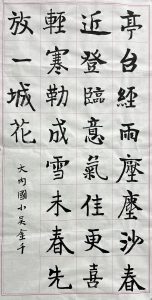 亭台經雨壓塵沙春
近登臨意氣佳更喜
輕寒勒成雪未春先
放一城花
大內國小吳金千